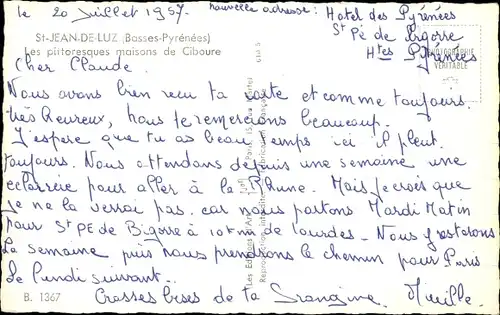 le 20 Juillet 1957. nouvelle adresse: Hotel des Pyrénées
St Pé de Bigorre
Htes Pyrénées
St-JEAN-DE-LUZ (Basses-Pyrénées)
Les pittoresques maisons de Ciboure
PHOTOGRAPHIE
VÉRITABLE
Cher Claude.
Nous avons bien recu ta carte et comme toujours.
très heureux, nous te remercions beaucoup.
J'espère que tu as beau temps ici il pleut.
toujours. Nous attendons depuis une semaine une
eclaircie pour aller à la Rhune. Mais je crois que
je ne la verrai pas. car nous partons Mardi Matin
pour St PE de Bigorre à 10 kms de lourdes. Nous y resterons
la semaine puis nous prendrons le chemin pour Paris
le lundi suivant.
Grosses bises de ta Frangine. Mireille.
B. 1367